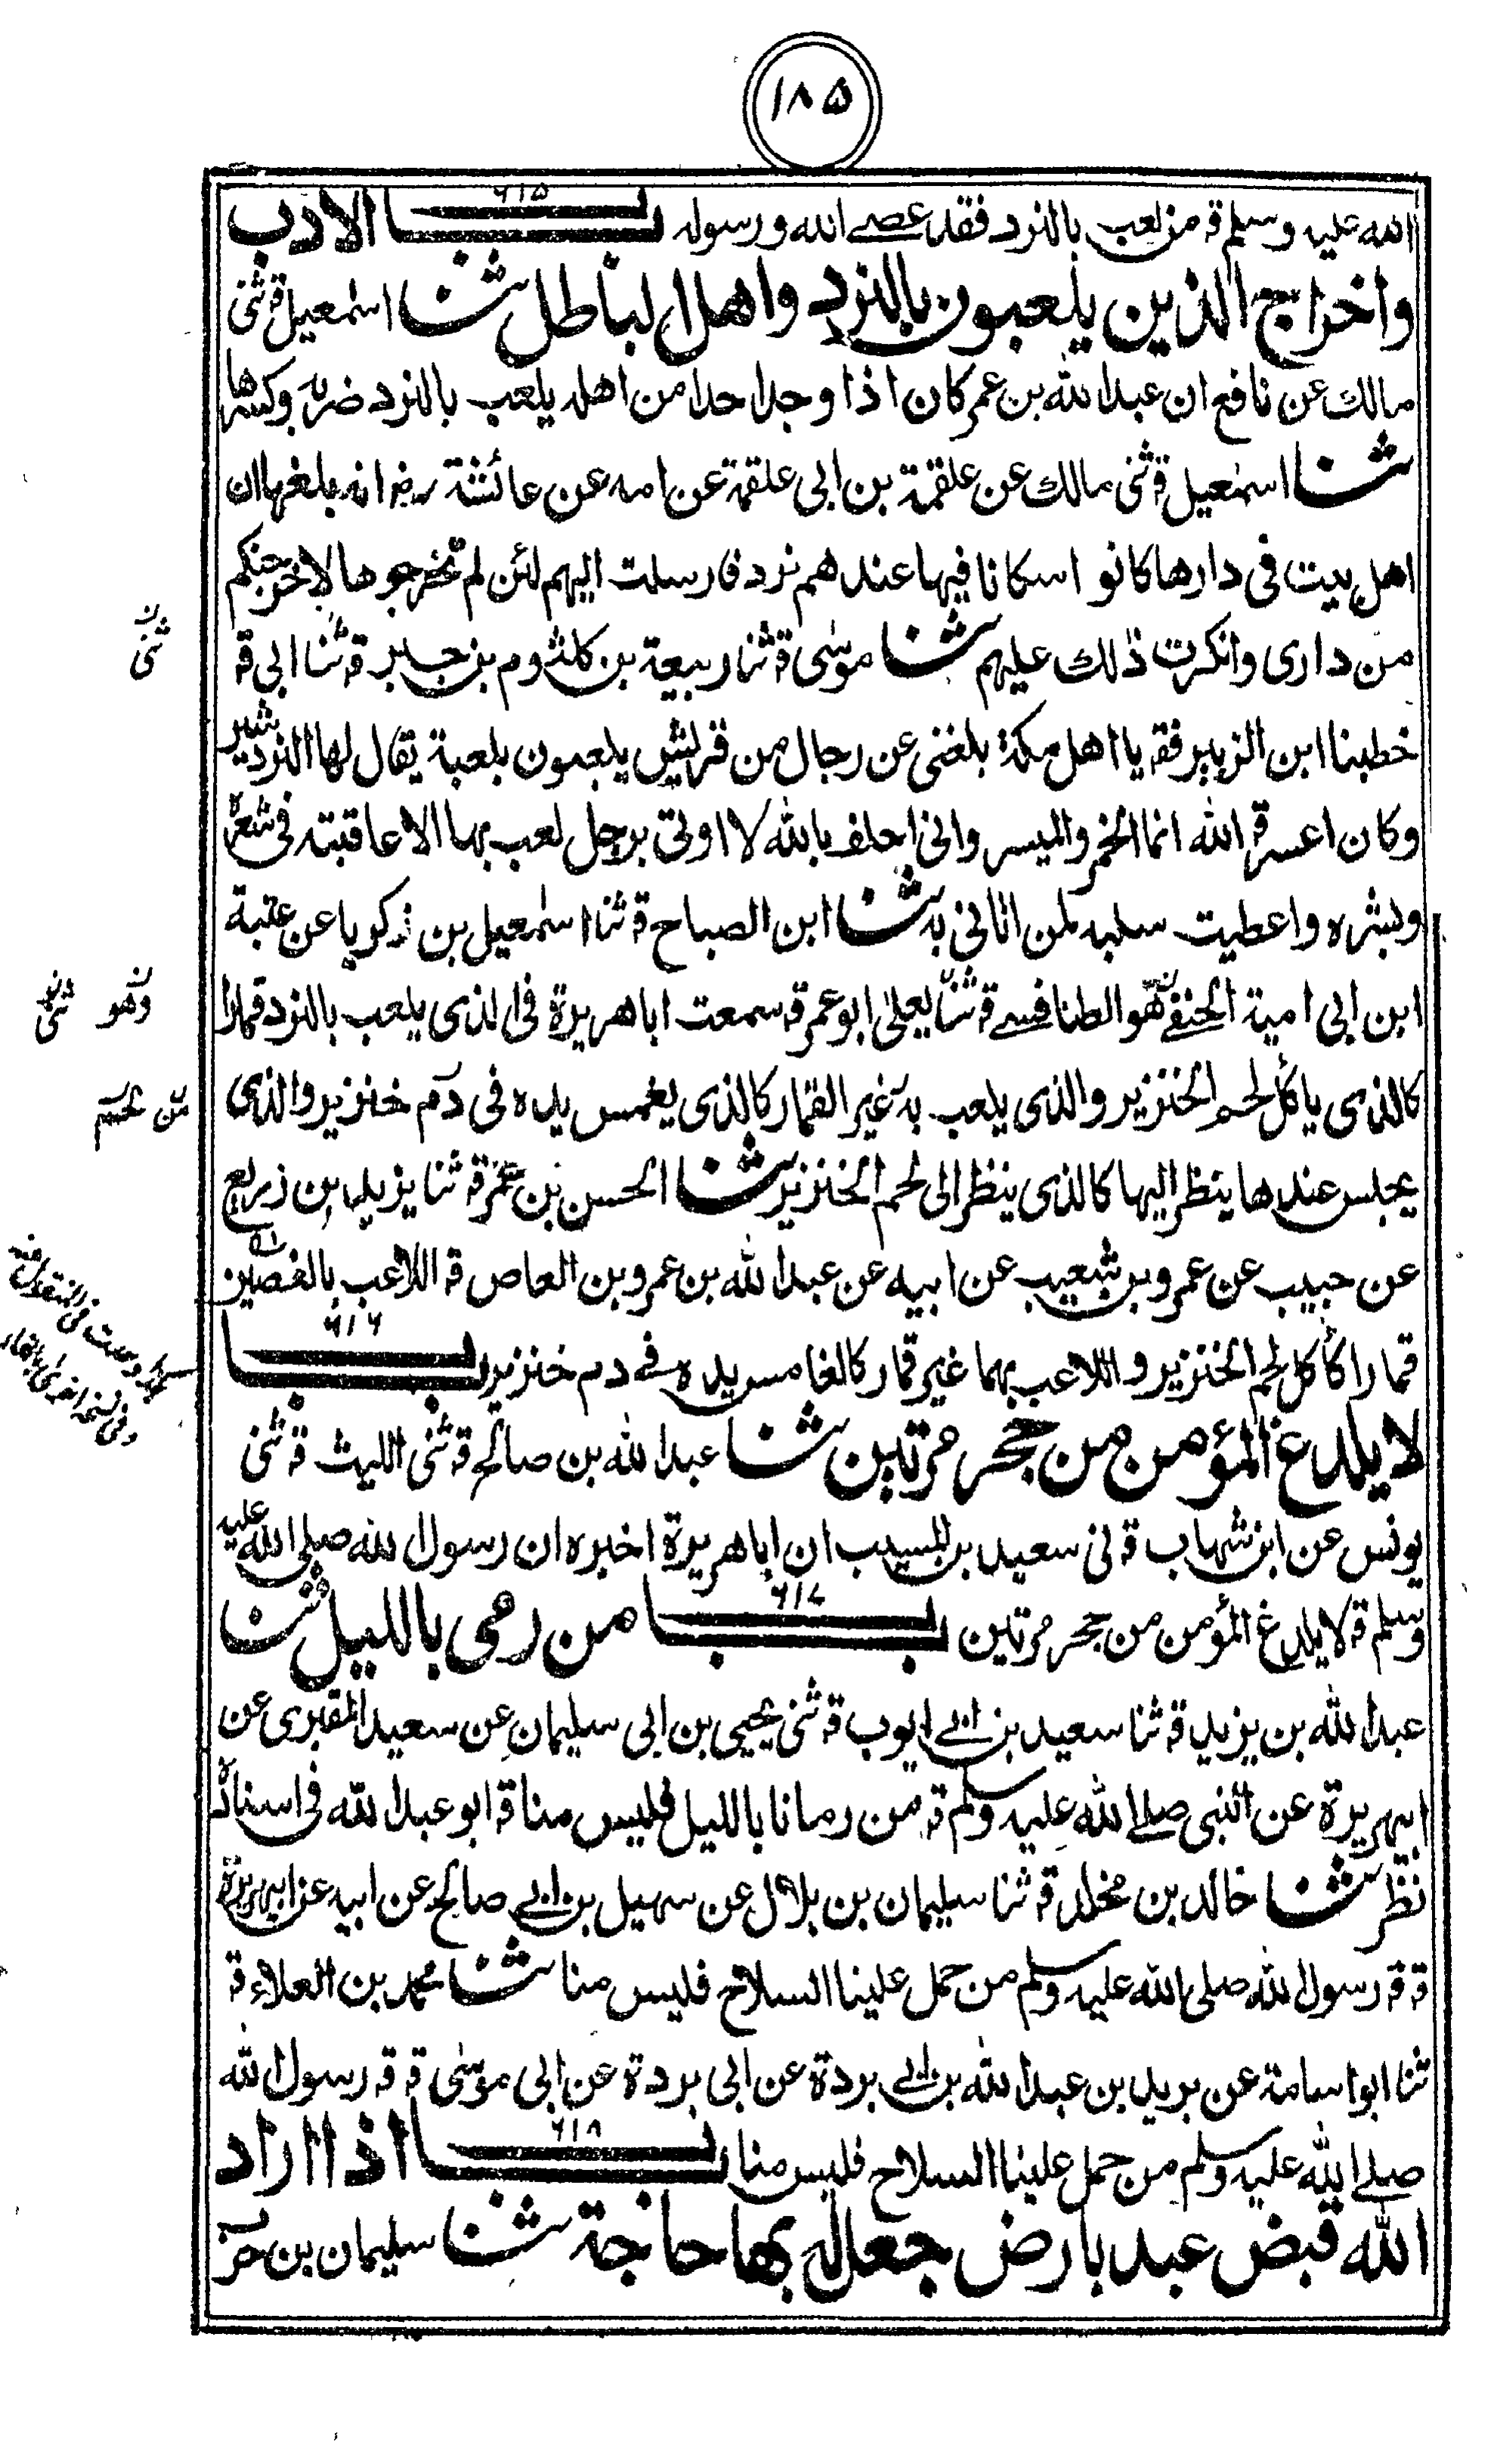 ١٨٥
الله عليه وسلم قـ من لعب بالنرد فقد عصى الله ورسوله بـــاب ٦١٥ الادب
واخراج الذين يلعبون بالنرد واهل الباطل ثنا اسمعيل قـ ثنى
مالك عن نافع ان عبد الله بن عمر كان اذا وجد احدا من اهله يلعب بالنرد ضربه وكسرها
ثنا اسمعيل قـ ثنى مالك عن علقمة بن ابى علقمة عن امه عن عائشة رضـ انه بلغها ان
اهل بيت فى دارها كانوا سكانا فيها عندهم نرد فارسلت اليهم لئن لم تخرجوها لاخرجنكم
من دارى وانكرت ذلك عليهم ثنا موسى قـ ثنا ربيعة بن كلثوم بن جبر قـ ثنا ابى قـ
ثنى
خطبنا ابن الزبير فقـ يا اهل مكة بلغنى عن رجال من قريش يلعبون بلعبة يقال لها النردشير
وكان اعسر قـ الله انما الخمر والميسر وانى احلف بالله لا اوتى برجل لعب بها الا عاقبته فى شعره
وبشره واعطيت سلبه لمن اتانى به ثنا ابن الصباح قـ ثنا اسمعيل بن زكريا عن عتبة
ابن ابى امية الحنفى هو الطنافسى قـ ثنا يعلى ابو عمر قـ سمعت ابا هريرة فى الذى يلعب بالنرد قمارا
وهو ثنى
كالذى ياكل لحم الخنزير والذى يلعب به غير القمار كالذى يغمس يده فى دم خنزير والذى
يجلس عندها ينظر اليها كالذى ينظر الى لحم الخنزير ثنا الحسن بن عمر قـ ثنا يزيد بن زريع
عن حبيب عن عمرو بن شعيب عن ابيه عن عبد الله بن عمرو بن العاص قـ اللاعب بالفصين
قمارا كآكل لحم الخنزير واللاعب بهما غير قمار كالغامس يده فى دم خنزير بـــاب ٦١٦
لا يلدغ المؤمن من جحر مرتين ثنا عبد الله بن صالح قـ ثنى الليث قـ ثنى
يونس عن ابن شهاب قـ نى سعيد بن المسيب ان ابا هريرة اخبره ان رسول الله صلى الله عليه
وسلم قـ لا يلدغ المؤمن من جحر مرتين بـــاب ٦١٧ من رمى بالليل ثنا
عبد الله بن يزيد قـ ثنا سعيد بن ابى ايوب قـ ثنى يحيى بن ابى سليمان عن سعيد المقبرى عن
ابى هريرة عن النبى صلى الله عليه وسلم قـ من رمانا بالليل فليس منا قـ ابو عبد الله فى اسناده
نظر ثنا خالد بن مخلد قـ ثنا سليمان بن بلال عن سهيل بن ابى صالح عن ابيه عن ابى هريرة
قـ قـ رسول الله صلى الله عليه وسلم من حمل علينا السلاح فليس منا ثنا محمد بن العلاء قـ
ثنا ابو اسامة عن بريد بن عبد الله بن ابى بردة عن ابى بردة عن ابى موسى قـ قـ رسول الله
صلى الله عليه وسلم من حمل علينا السلاح فليس منا بـــاب ٦١٨ اذا اراد
الله قبض عبد بارض جعل له بها حاجة ثنا سليمان بن حرب